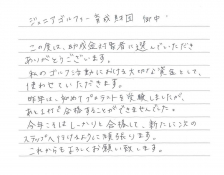 ジュニアゴルファー育成財団 御中
この度は、助成金対象者に選んでいただき
ありがとうございます。
私のゴルフ活動における大切な資金として、
使わせていただきます。
昨年は、初めてプロテストを受験しましたが、
あと1打で合格することができませんでした。
今年こそはしっかりと合格して、新たに次の
ステップへ行けるように頑張ります。
これからもよろしくお願い致します。